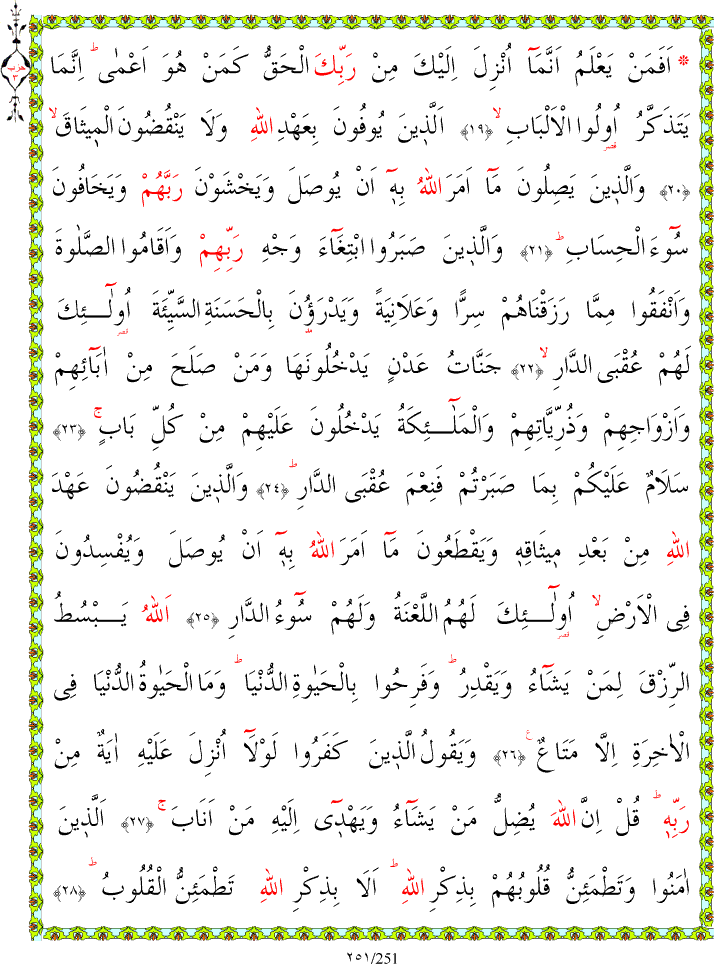 حزب
٣
* اَفَمَنْ يَعْلَمُ اَنَّمَٓا اُنْزِلَ اِلَيْكَ مِنْ رَبِّكَ الْحَقُّ كَمَنْ هُوَ اَعْمٰىۜ اِنَّمَا
يَتَذَكَّرُ اُو۬لُوا الْاَلْبَابِۙ ﴿١٩﴾ اَلَّذٖينَ يُوفُونَ بِعَهْدِ اللهِ وَلَا يَنْقُضُونَ الْمٖيثَاقَۙ
﴿٢٠﴾ وَالَّذٖينَ يَصِلُونَ مَٓا اَمَرَ اللهُ بِهٖٓ اَنْ يُوصَلَ وَيَخْشَوْنَ رَبَّهُمْ وَيَخَافُونَ
سُٓوءَ الْحِسَابِۜ ﴿٢١﴾ وَالَّذٖينَ صَبَرُوا ابْتِغَٓاءَ وَجْهِ رَبِّهِمْ وَاَقَامُوا الصَّلٰوةَ
وَاَنْفَقُوا مِمَّا رَزَقْنَاهُمْ سِرًّا وَعَلَانِيَةً وَيَدْرَؤُ۫نَ بِالْحَسَنَةِ السَّيِّئَةَ اُو۬لٰٓئِكَ
لَهُمْ عُقْبَى الدَّارِۙ ﴿٢٢﴾ جَنَّاتُ عَدْنٍ يَدْخُلُونَهَا وَمَنْ صَلَحَ مِنْ اٰبَٓائِهِمْ
وَاَزْوَاجِهِمْ وَذُرِّيَّاتِهِمْ وَالْمَلٰٓئِكَةُ يَدْخُلُونَ عَلَيْهِمْ مِنْ كُلِّ بَابٍۚ ﴿٢٣﴾
سَلَامٌ عَلَيْكُمْ بِمَا صَبَرْتُمْ فَنِعْمَ عُقْبَى الدَّارِۜ ﴿٢٤﴾ وَالَّذٖينَ يَنْقُضُونَ عَهْدَ
اللهِ مِنْ بَعْدِ مٖيثَاقِهٖ وَيَقْطَعُونَ مَٓا اَمَرَ اللهُ بِهٖٓ اَنْ يُوصَلَ وَيُفْسِدُونَ
فِى الْاَرْضِۙ اُو۬لٰٓئِكَ لَهُمُ اللَّعْنَةُ وَلَهُمْ سُٓوءُ الدَّارِ ﴿٢٥﴾ اَللهُ يَبْسُطُ
الرِّزْقَ لِمَنْ يَشَٓاءُ وَيَقْدِرُۜ وَفَرِحُوا بِالْحَيٰوةِ الدُّنْيَاۜ وَمَا الْحَيٰوةُ الدُّنْيَا فِى
الْاٰخِرَةِ اِلَّا مَتَاعٌ ﴿٢٦﴾ وَيَقُولُ الَّذٖينَ كَفَرُوا لَوْلَٓا اُنْزِلَ عَلَيْهِ اٰيَةٌ مِنْ
رَبِّهٖۜ قُلْ اِنَّ اللهَ يُضِلُّ مَنْ يَشَٓاءُ وَيَهْدٖٓى اِلَيْهِ مَنْ اَنَابَۚ ﴿٢٧﴾ اَلَّذٖينَ
اٰمَنُوا وَتَطْمَئِنُّ قُلُوبُهُمْ بِذِكْرِ اللهِۜ اَلَا بِذِكْرِ اللهِ تَطْمَئِنُّ الْقُلُوبُۜ ﴿٢٨﴾
٢٥١/251